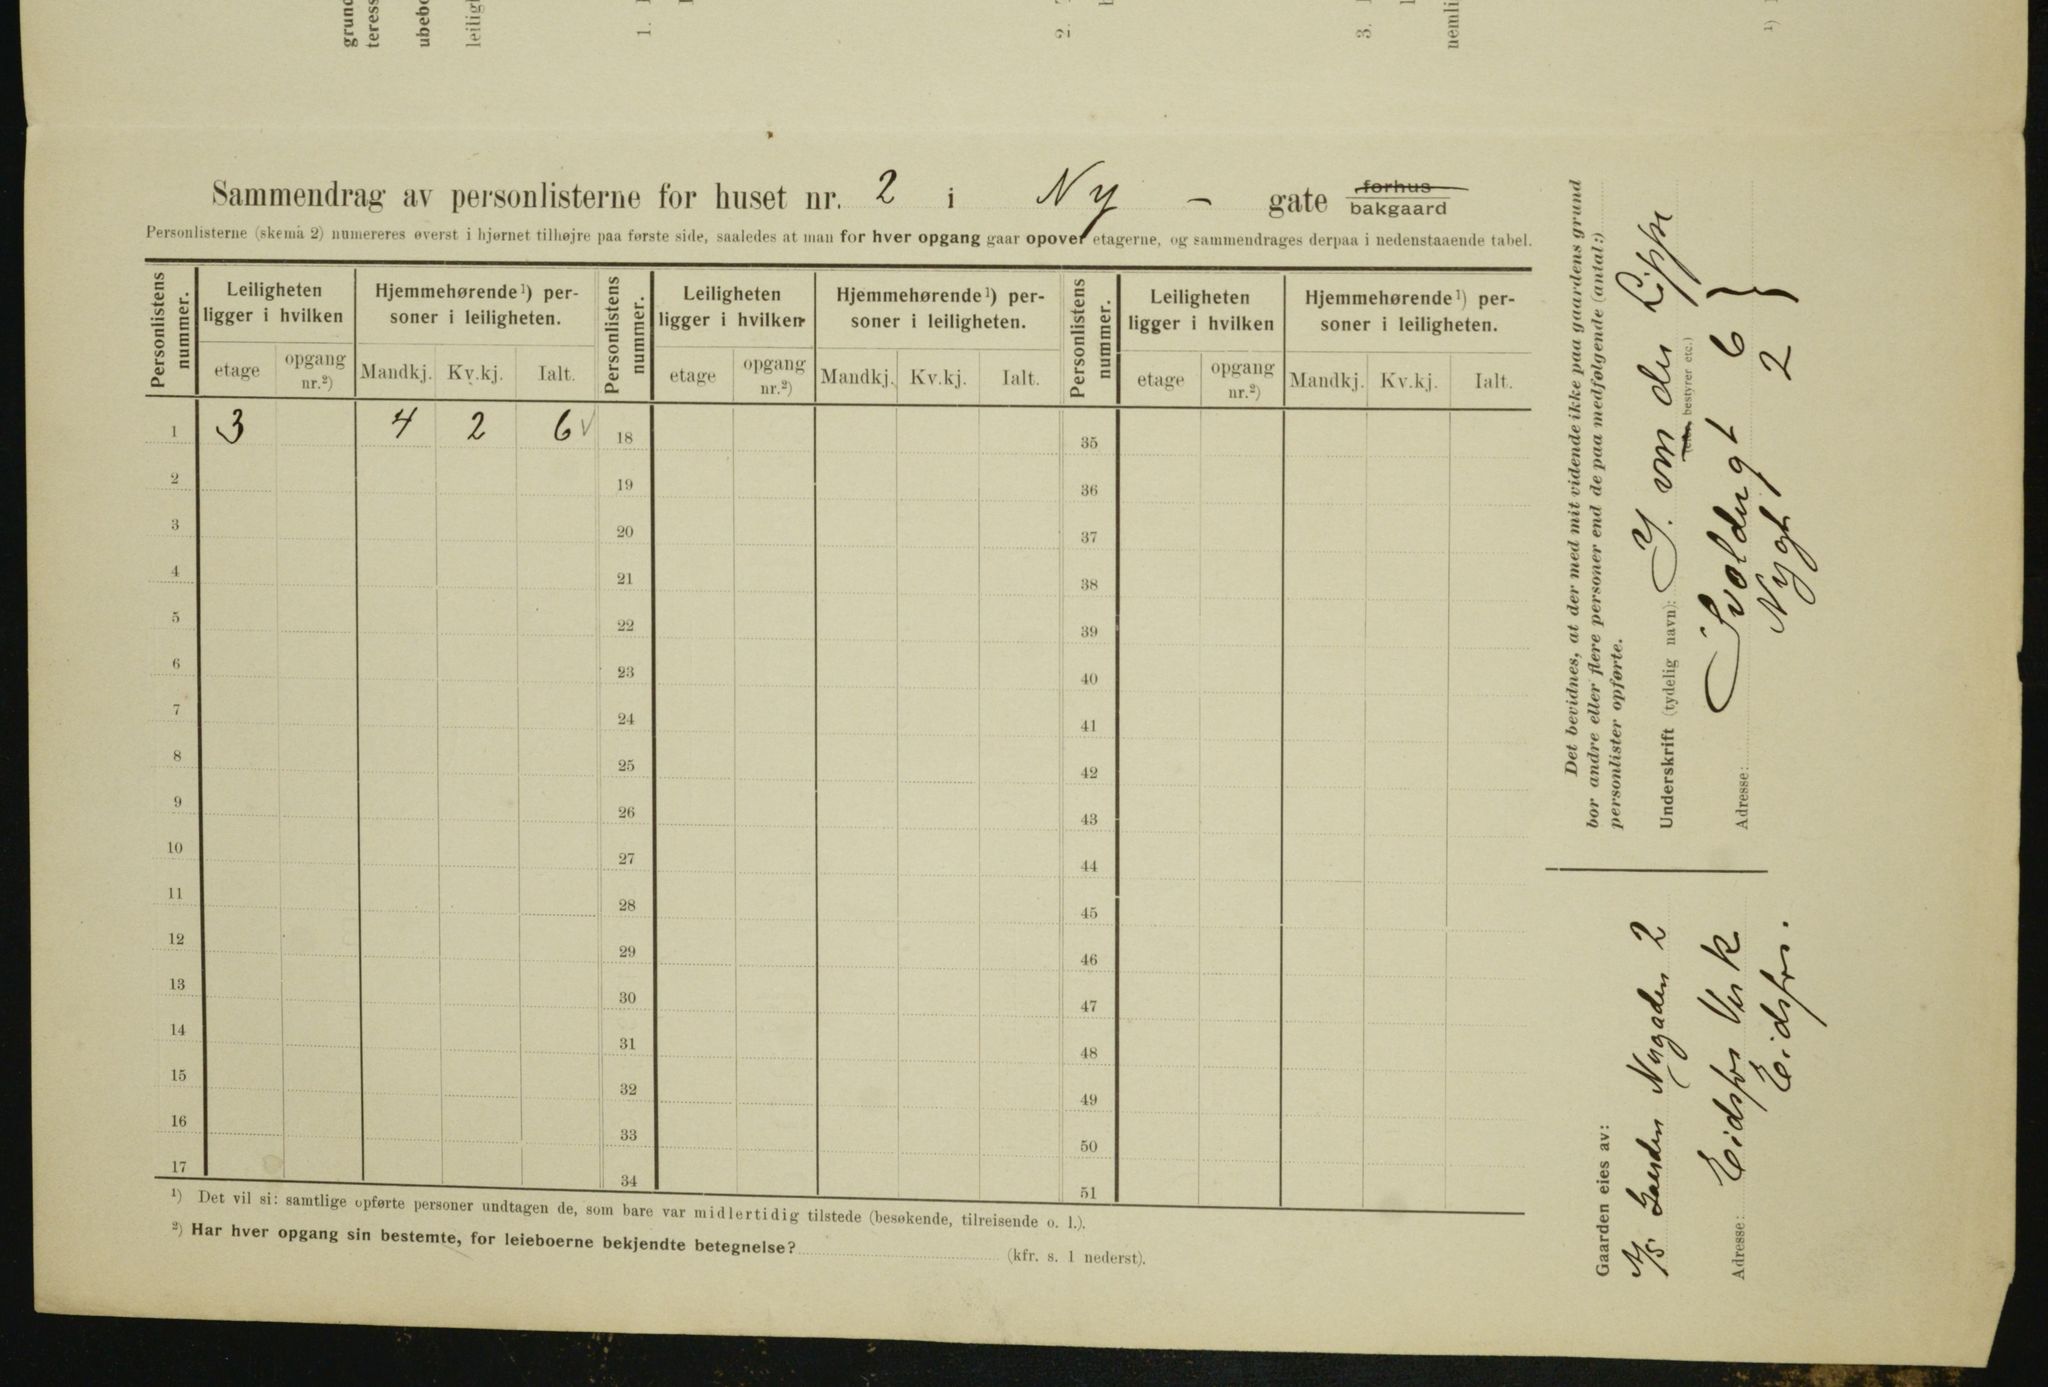 grund
teress
ubebo
leiligh
1.
2.
3.
nemli
1)
Sammendrag av personlisterne for huset nr. 2 i Ny - gate forhus bakgaard
Personlisterne (skema 2) numereres øverst i hjørnet tilhøjre paa første side, saaledes at man for hver opgang gaar opover etagerne, og sammendrages derpaa i nedenstaaende tabel.
Personlistens nummer. Leiligheten ligger i hvilken Hjemmehørende¹) personer i leiligheten. Personlistens nummer. Leiligheten ligger i hvilken Hjemmehørende¹) personer i leiligheten. Personlistens nummer. Leiligheten ligger i hvilken Hjemmehørende¹) personer i leiligheten.
etage opgang nr.²) Mandkj. Kv.kj. Ialt. etage opgang nr.²) Mandkj. Kv.kj. Ialt. etage opgang nr.²) Mandkj. Kv.kj. Ialt.
1 3 4 2 6 18 35
2 19 36
3 20 37
4 21 38
5 22 39
6 23 40
7 24 41
8 25 42
9 26 43
10 27 44
11 28 45
12 29 46
13 30 47
14 31 48
15 32 49
16 33 50
17 34 51
¹) Det vil si: samtlige opførte personer undtagen de, som bare var midlertidig tilstede (besøkende, tilreisende o. l.).
²) Har hver opgang sin bestemte, for leieboerne bekjendte betegnelse? (kfr. s. 1 nederst).
Det bevidnes, at der med mit vidende ikke paa gaardens grund
bor andre eller flere personer end de paa medfølgende (antal:)
personlister opførte.
Underskrift (tydelig navn): Y. von der Lippe
(eier, bestyrer etc.)
Adresse: Svolderg t 6 }
Nygt 2
Gaarden eies av:
A/S Gaarden Nygaden 2
Adresse: Eidsfos Verk
Eidsfos.